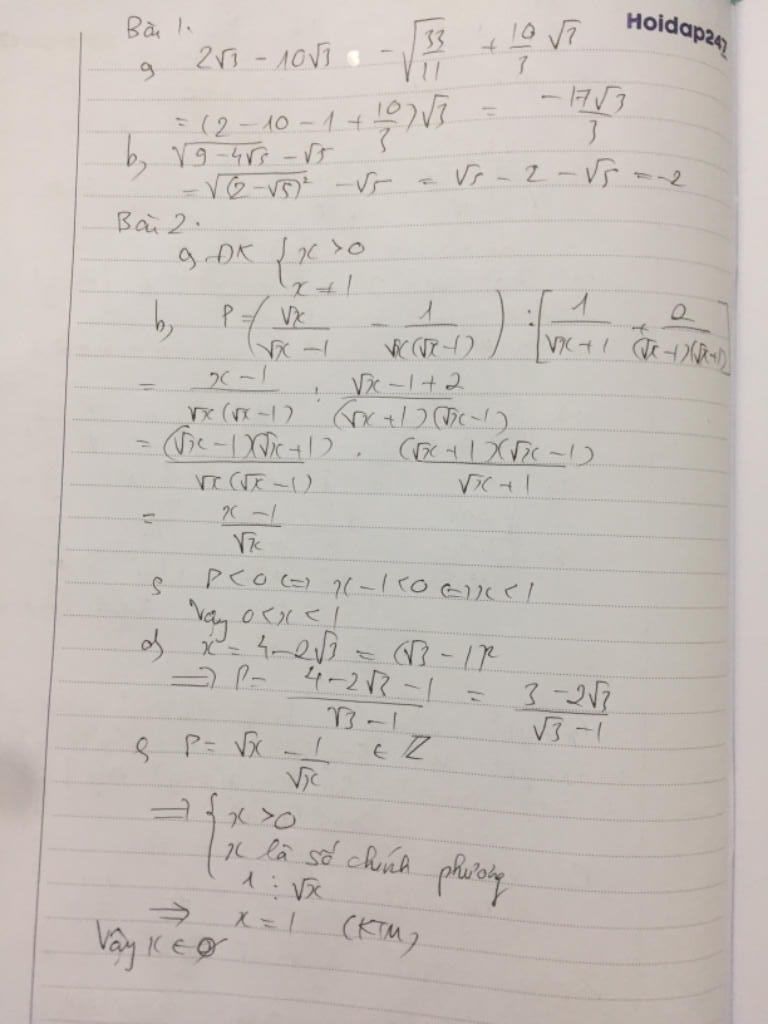 Hoidap247
Bài 1.
a, 2√3 - 10√3 - √(33/11) + 10/3 √3
= (2 - 10 - 1 + 10/3)√3 = -17√3/3
b, √(9 - 4√5) - √5
= √((2 - √5)²) - √5 = √5 - 2 - √5 = -2
Bài 2.
a, ĐK { x > 0
x ≠ 1
b, P = (√x/(√x - 1) - 1/(√x(√x - 1))) : [1/(√x + 1) + 2/((√x - 1)(√x + 1))]
= (x - 1)/(√x(√x - 1)) : (√x - 1 + 2)/((√x + 1)(√x - 1))
= (√x - 1)(√x + 1)/(√x(√x - 1)) . (√x + 1)(√x - 1)/(√x + 1)
= (x - 1)/√x
c, P < 0 <=> x - 1 < 0 <=> x < 1
Vậy 0 < x < 1
d, x = 4 - 2√3 = (√3 - 1)²
=> P = (4 - 2√3 - 1)/(√3 - 1) = (3 - 2√3)/(√3 - 1)
e, P = √x - 1/√x ∈ Z
=> { x > 0
x là số chính phương
1 ⋮ √x
=> x = 1 (KTM)
Vậy x ∈ ∅